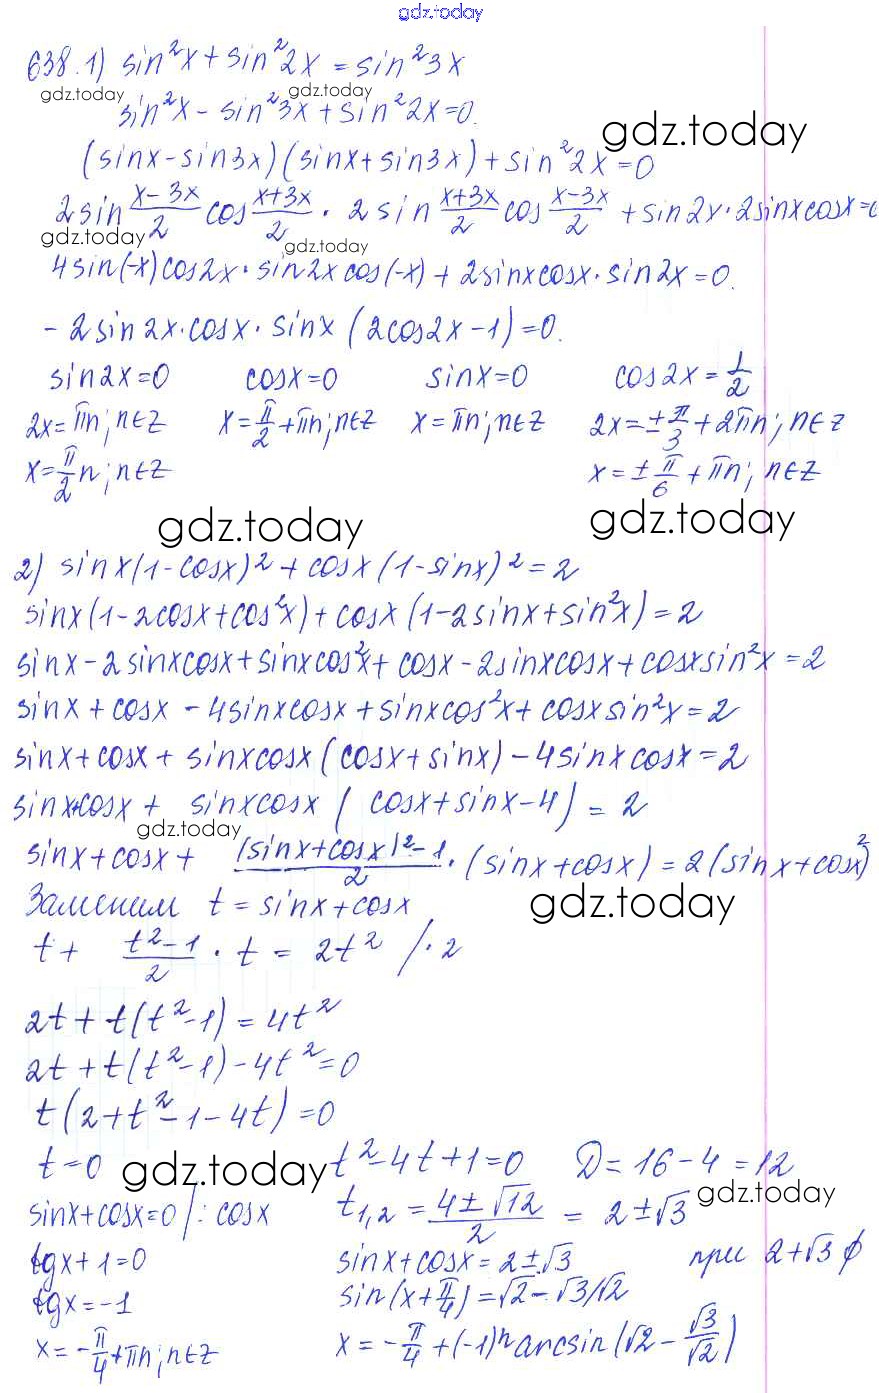 gdz.today
638.1) sin²x + sin²2x = sin²3x
gdz.today gdz.today
sin²x - sin²3x + sin²2x = 0.
gdz.today
(sinx - sin3x)(sinx + sin3x) + sin²2x = 0
2 sin (x-3x)/2 cos (x+3x)/2 · 2 sin (x+3x)/2 cos (x-3x)/2 + sin2x · 2sinxcosx = 0
gdz.today gdz.today
4sin(-x)cos2x · sin2x cos(-x) + 2sinxcosx · sin2x = 0.
- 2 sin2x · cosx · sinx (2cos2x - 1) = 0.
sin2x = 0 cosx = 0 sinx = 0 cos2x = 1/2
2x = πn; n∈Z x = π/2 + πn; n∈Z x = πn; n∈Z 2x = ± π/3 + 2πn; n∈Z
x = π/2 n; n∈Z x = ± π/6 + πn; n∈Z
gdz.today gdz.today
2) sinx(1 - cosx)² + cosx(1 - sinx)² = 2
sinx(1 - 2cosx + cos²x) + cosx(1 - 2sinx + sin²x) = 2
sinx - 2sinxcosx + sinxcos²x + cosx - 2sinxcosx + cosxsin²x = 2
sinx + cosx - 4sinxcosx + sinxcos²x + cosxsin²x = 2
sinx + cosx + sinxcosx(cosx + sinx) - 4sinxcosx = 2
sinx+cosx + sinxcosx (cosx + sinx - 4) = 2
gdz.today
sinx + cosx + ((sinx + cosx)² - 1)/2 · (sinx + cosx) = 2(sinx + cosx)²
Заменим t = sinx + cosx
gdz.today
t + (t² - 1)/2 · t = 2t² /· 2
2t + t(t² - 1) = 4t²
2t + t(t² - 1) - 4t² = 0
t(2 + t² - 1 - 4t) = 0
t = 0 t² - 4t + 1 = 0 D = 16 - 4 = 12
gdz.today gdz.today
sinx + cosx = 0 /: cosx t₁,₂ = (4 ± √12)/2 = 2 ± √3
tgx + 1 = 0 sinx + cosx = 2 ± √3 при 2 + √3 ∅
tgx = -1 sin(x + π/4) = √2 - √3/√2
x = - π/4 + πn; n∈Z x = - π/4 + (-1)ⁿ arcsin(√2 - √3/√2)